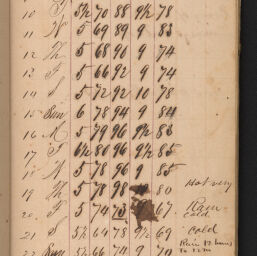 10 T 5½ 70 88 9½ 78
11 W 5 69 89 9 83
12 Th 5 68 90 9 74
13 F 5 66 92 9 74
14 S 5 72 92 10 78
15 Sun 6 78 94 9 84
16 M 5 79 96 9½ 83
17 T 5½ 80 96 9½ 85
18 W 5 78 96 9 85
19 Th 5 78 98 80 Hot very
20 F 5 74 73 67 Rain cold
21 S 5½ 64 78 9½ 69 cold
22 Sun 5½ 66 74 9 70 Rain 12 hours